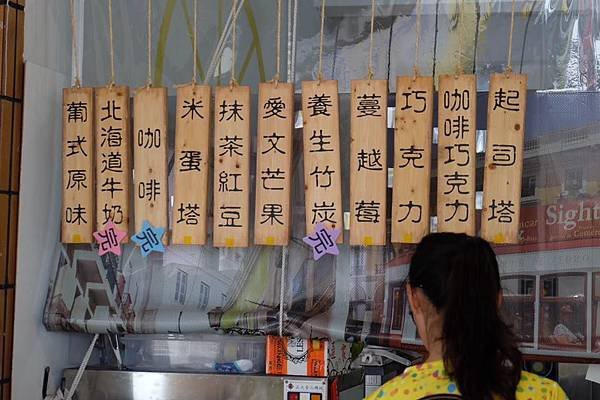 葡式原味
北海道牛奶
咖啡
米蛋塔
抹茶紅豆
愛文芒果
養生竹炭
蔓越莓
巧克力
咖啡巧克力
起司塔
完
完
完
Sight